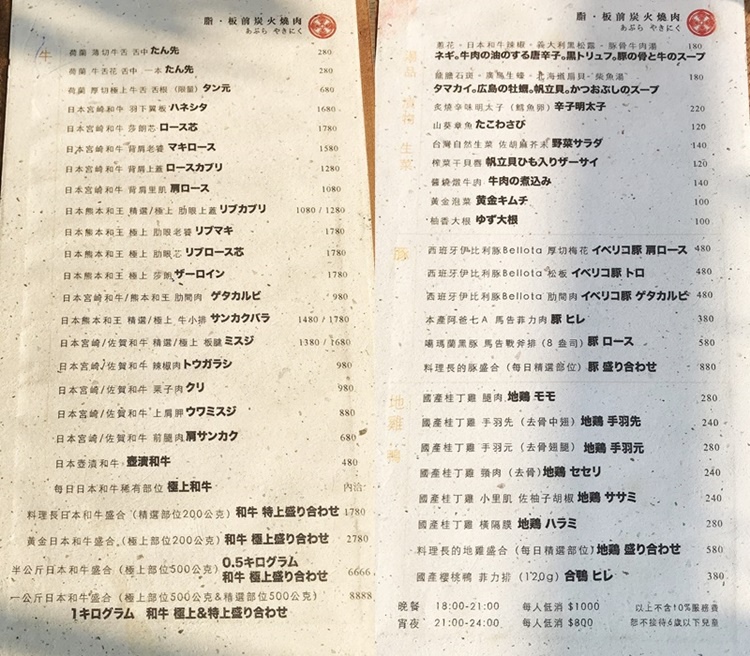 脂・板前炭火燒肉
あぶら やきにく
牛
荷蘭 薄切牛舌 舌中 たん先 280
荷蘭 牛舌花 舌中 一本 たん先 280
荷蘭 厚切極上牛舌 舌根（限量）タン元 680
日本宮崎和牛 羽下翼板 ハネシタ 1680
日本宮崎和牛 莎朗芯 ロース芯 1780
日本宮崎和牛 背肩老饕 マキロース 1580
日本宮崎和牛 背肩上蓋 ロースカブリ 1280
日本宮崎和牛 背肩里肌 肩ロース 1080
日本熊本和王 精選/極上 肋眼上蓋 リブカブリ 1080 / 1280
日本熊本和王 極上 肋眼老饕 リブマキ 1780
日本熊本和王 極上 肋眼芯 リブロース芯 1780
日本熊本和王 極上 莎朗 ザーロイン 1780
日本宮崎和牛/熊本和王 肋間肉 ゲタカルビ 980
日本熊本和王 精選/極上 牛小排 サンカクバラ 1480 / 1780
日本宮崎/佐賀和牛 精選/極上 板腱 ミスジ 1380 / 1680
日本宮崎/佐賀和牛 辣椒肉 トウガラシ 980
日本宮崎/佐賀和牛 栗子肉 クリ 980
日本宮崎/佐賀和牛 上肩胛 ウワミスジ 880
日本宮崎/佐賀和牛 前腿肉 肩サンカク 680
日本壺漬和牛 壺漬和牛 480
每日日本和牛稀有部位 極上和牛 內洽
料理長日本和牛盛合（精選部位200公克）和牛 特上盛り合わせ 1780
黃金日本和牛盛合（極上部位200公克）和牛 極上盛り合わせ 2780
半公斤日本和牛盛合（極上部位500公克）0.5キログラム 和牛 極上盛り合わせ 6666
一公斤日本和牛盛合（極上部位500公克&精選部位500公克） 8888
1キログラム 和牛 極上&特上盛り合わせ
脂・板前炭火燒肉
あぶら やきにく
蔥花。日本和牛辣椒。義大利黑松露。豚骨牛肉湯 180
ネギ。牛肉の油のする唐辛子。黒トリュフ。豚の骨と牛のスープ
龍膽石斑。廣島生蠔。北海道扇貝。柴魚湯 180
タマカイ。広島の牡蠣。帆立貝。かつおぶしのスープ
炙燒辛味明太子（鱈魚卵）辛子明太子 220
山葵章魚 たこわさび 120
台灣自然生菜 佐胡麻芥末 野菜サラダ 140
榨菜干貝唇 帆立貝ひも入りザーサイ 120
醬燒燉牛肉 牛肉の煮込み 140
黃金泡菜 黄金キムチ 100
柚香大根 ゆず大根 100
豚
西班牙伊比利豚Bellota 厚切梅花 イベリコ豚 肩ロース 480
西班牙伊比利豚Bellota 松板 イベリコ豚 トロ 480
西班牙伊比利豚Bellota 肋間肉 イベリコ豚 ゲタカルビ 480
本產阿爸七A 馬告菲力肉 豚 ヒレ 380
噶瑪蘭黑豚 馬告戰斧排（8 盎司）豚 ロース 580
料理長的豚盛合（每日精選部位）豚 盛り合わせ 880
地雞 鴨
國產桂丁雞 腿肉 地鶏 モモ 280
國產桂丁雞 手羽先（去骨中翅）地鶏 手羽先 240
國產桂丁雞 手羽元（去骨翅腿）地鶏 手羽元 280
國產桂丁雞 頸肉（去骨）地鶏 セセリ 240
國產桂丁雞 小里肌 佐柚子胡椒 地鶏 ササミ 240
國產桂丁雞 橫隔膜 地鶏 ハラミ 280
料理長的地雞盛合（每日精選部位）地鶏 盛り合わせ 580
國產櫻桃鴨 菲力排（120g）合鴨 ヒレ 380
晚餐 18:00-21:00 每人低消 $1000 以上不含10%服務費
宵夜 21:00-24:00 每人低消 $800 恕不接待6歲以下兒童